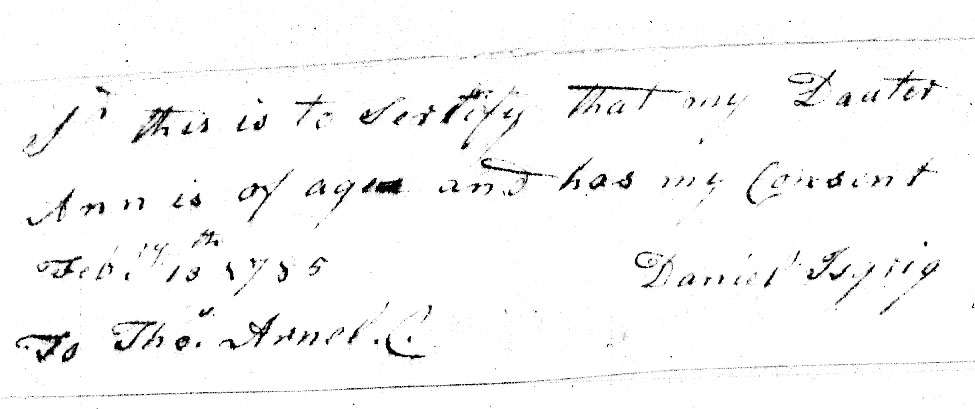 Sr this is to Sertify that my Dauter
Ann is of age and has my Consent
Feb.ry 10th 1785 Daniel Isgrig
To Thos. Arnel. C.